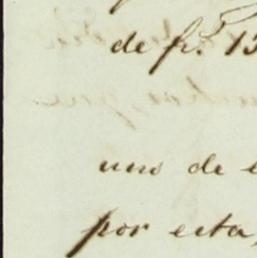 de fr.s 13
uno de e
por esta,